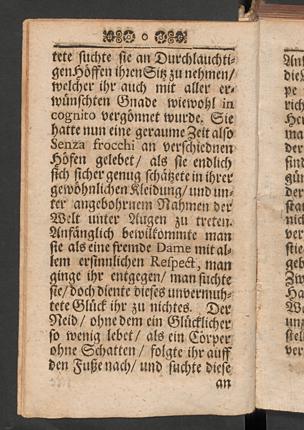 tete suchte sie an Durchlauchti-
gen Höffen ihren Sitz zu nehmen/
welcher ihr auch mit aller er-
wünschten Gnade wiewohl in
cognito vergönnet wurde. Sie
hatte nun eine geraume Zeit also
Senza frocchi an verschiednen
Höfen gelebet/ als sie endlich
sich sicher genug schätzete in ihrer
gewöhnlichen Kleidung/ und un-
ter angebohrnem Nahmen der
Welt unter Augen zu treten.
Anfänglich bewillkommte man
sie als eine fremde Dame mit al-
lem ersinnlichen Respect, man
ginge ihr entgegen/ man suchte
sie/ doch diente dieses unvermuh-
tete Glück ihr zu nichtes. Der
Neid/ ohne dem ein Glücklicher
so wenig lebet/ als ein Cörper
ohne Schatten/ folgte ihr auff
den Fuße nach/ und suchte diese
an